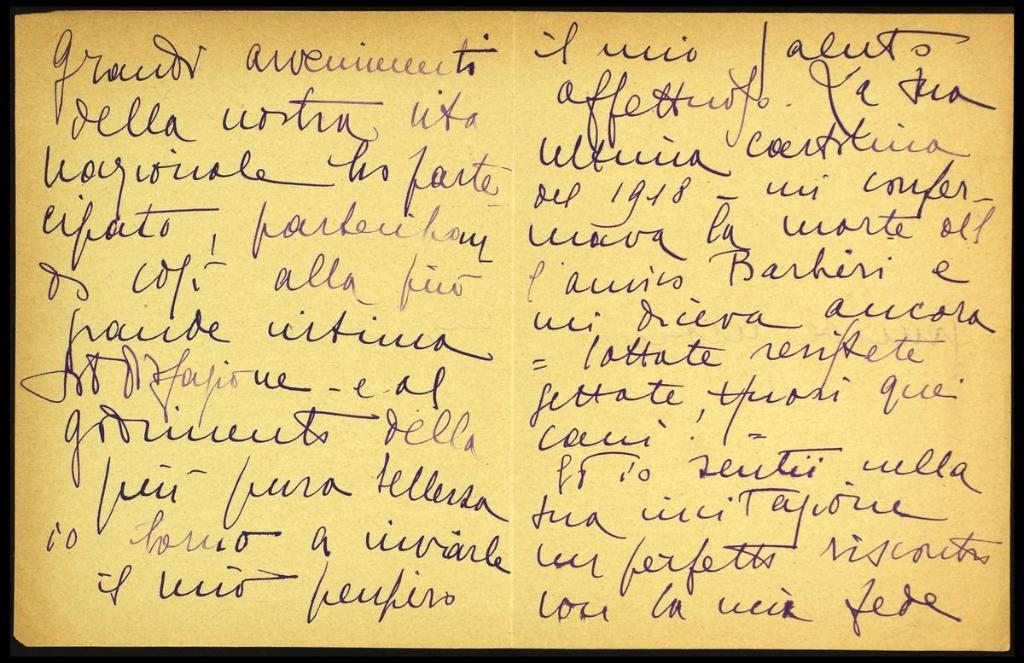 grandi avvenimenti
della nostra vita
nazionale ho parte
cipato, partecipan
do così alla più
grande intima
soddisfazione - e al
godimento della
più pura bellezza
io torno a inviarle
il mio pensiero
il mio saluto
affettuoso. La sua
ultima cartolina
del 1918 - mi confer-
mava la morte del
l'amico Barbieri e
mi diceva ancora
= lottate resistete
gettate, fuori quei
cani. =
Ed io sentii nella
sua incitazione
un perfetto riscontro
con la mia fede